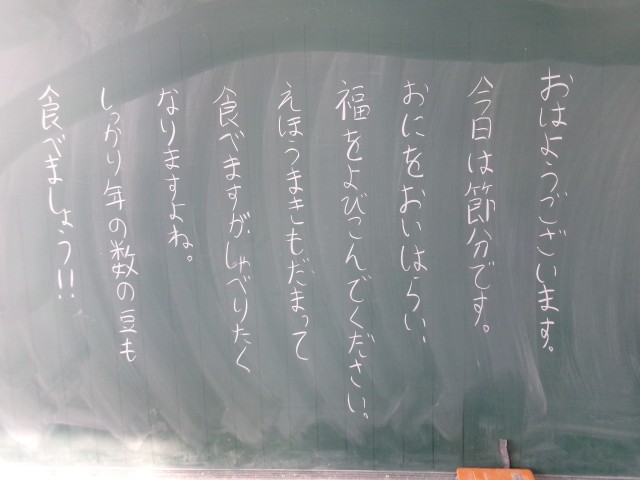 おはようございます。
今日は節分です。
おにをおいはらい、
福をよびこんでください。
えほうまきもだまって
食べますが、しゃべりたく
なりますよね。
しっかり年の数の豆も
食べましょう!!